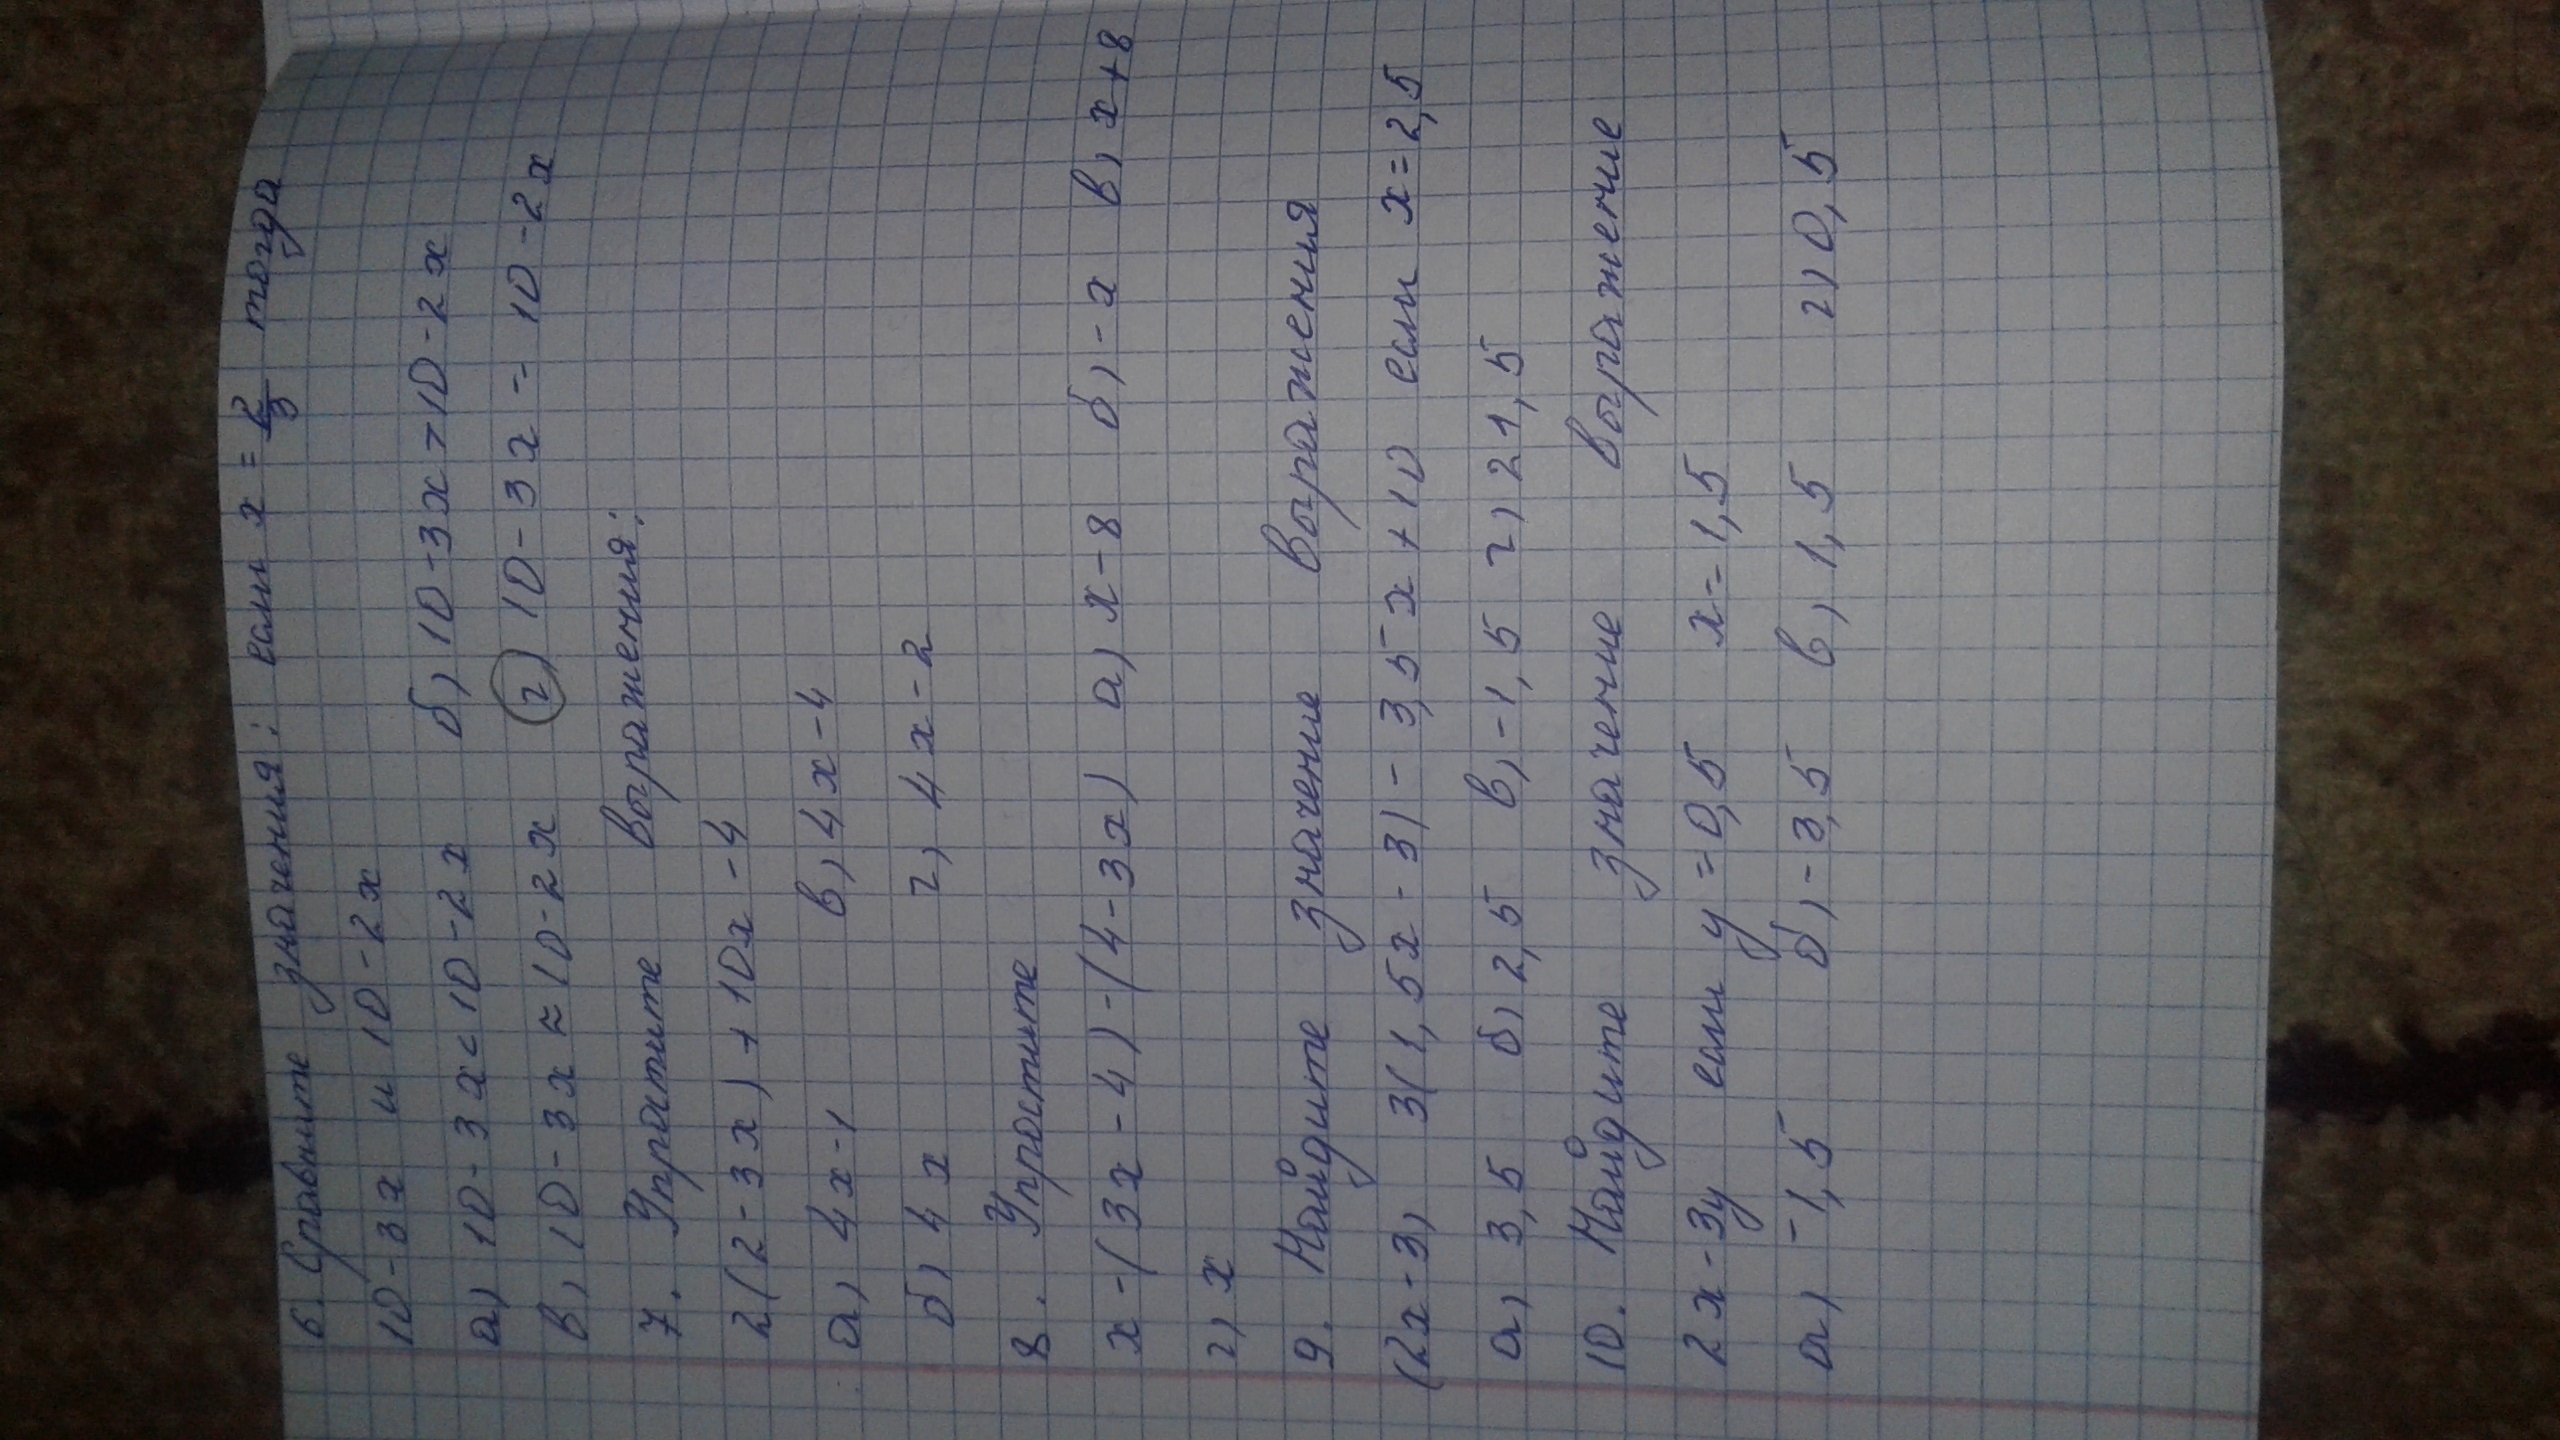 6. Сравните значения; если x = 2/3 тогда
10-3x и 10-2x
а) 10-3x<10-2x б) 10-3x>10-2x
в) 10-3x≈10-2x г) 10-3x=10-2x
7. Упротите воражения:
2(2-3x)+10x-4
а) 4x-1 в) 4x-4
б) 4x г) 4x-2
8. Упростите
x-(3x-4)-(4-3x) а) x-8 б) -x в) x+8
г) x
9. Найдите значение воражения
(2x-3) 3(1,5x-3)-3,5x+10 если x=2,5
а) 3,5 б) 2,5 в) -1,5 г) 21,5
10. Найдите значение воражение
2x-3y если y=0,5 x=1,5
а) -1,5 б) -3,5 в) 1,5 г) 0,5